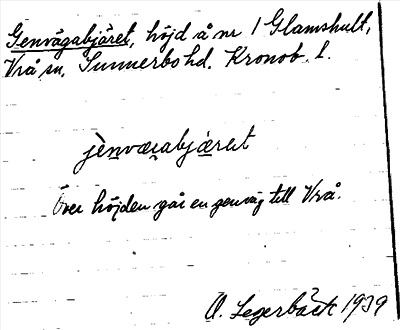 Genvägabjäret, höjd å nr 1 Glamshult,
Vrå sn, Sunnerbo hd. Kronob. l.
jènvæ̀gabjæ̀ret
Över höjden går en genväg till Vrå.
O. Legerbäck 1939